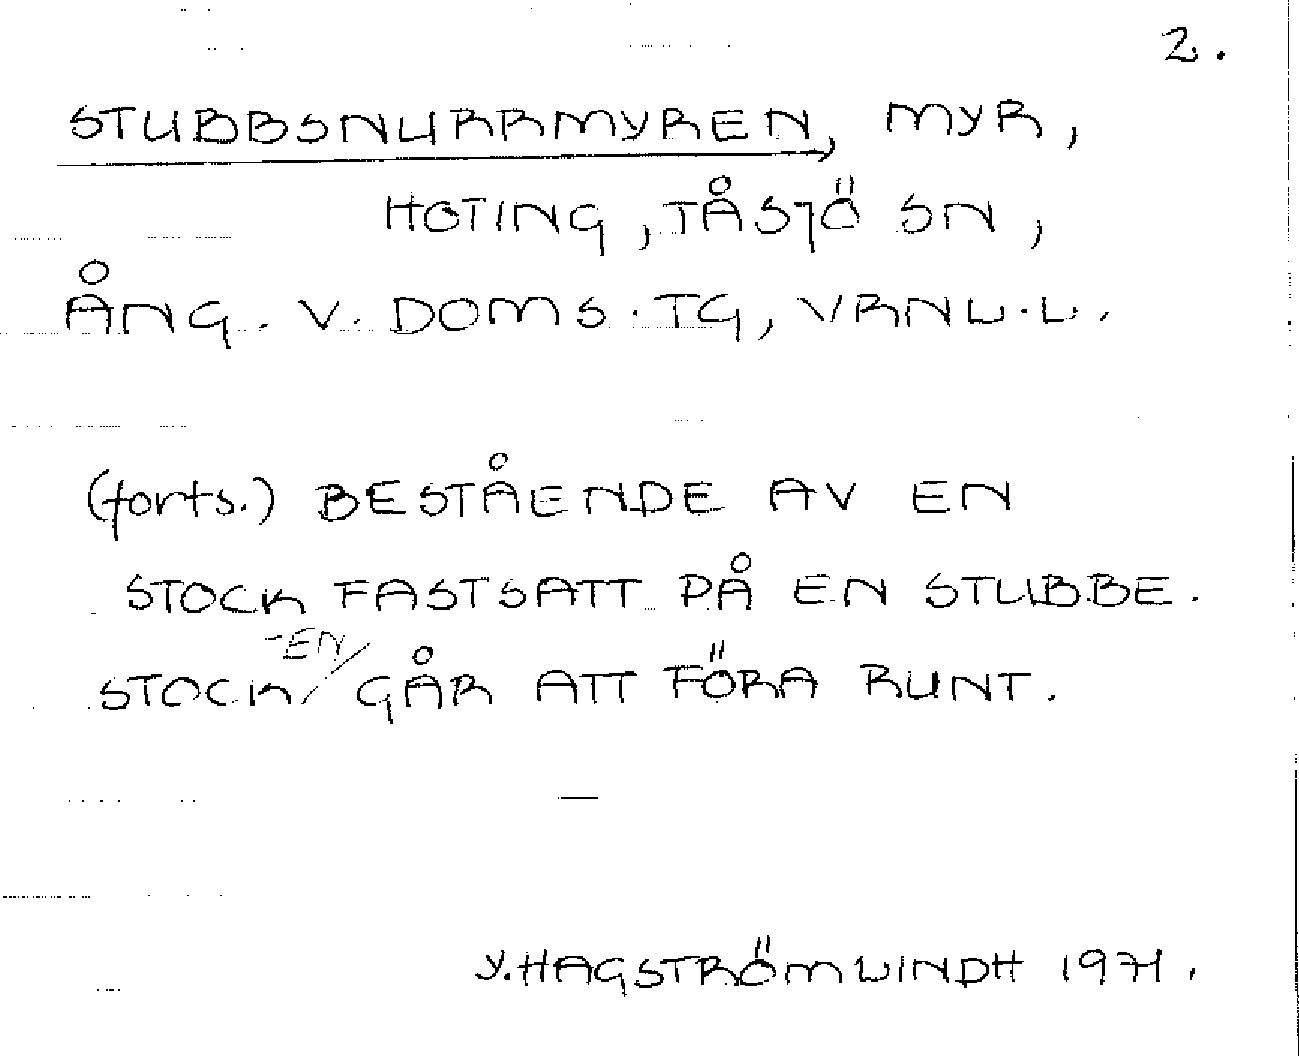 2.
STUBBSNURRMYREN, MYR,
HOTING, TÅSJÖ SN,
ÅNG. V. DOMS. TG, VRNL.L.
(forts.) BESTÅENDE AV EN
STOCK FASTSATT PÅ EN STUBBE.
-EN
STOCK/ GÅR ATT FÖRA RUNT.
—
Y. HAGSTRÖM LINDH 1971.